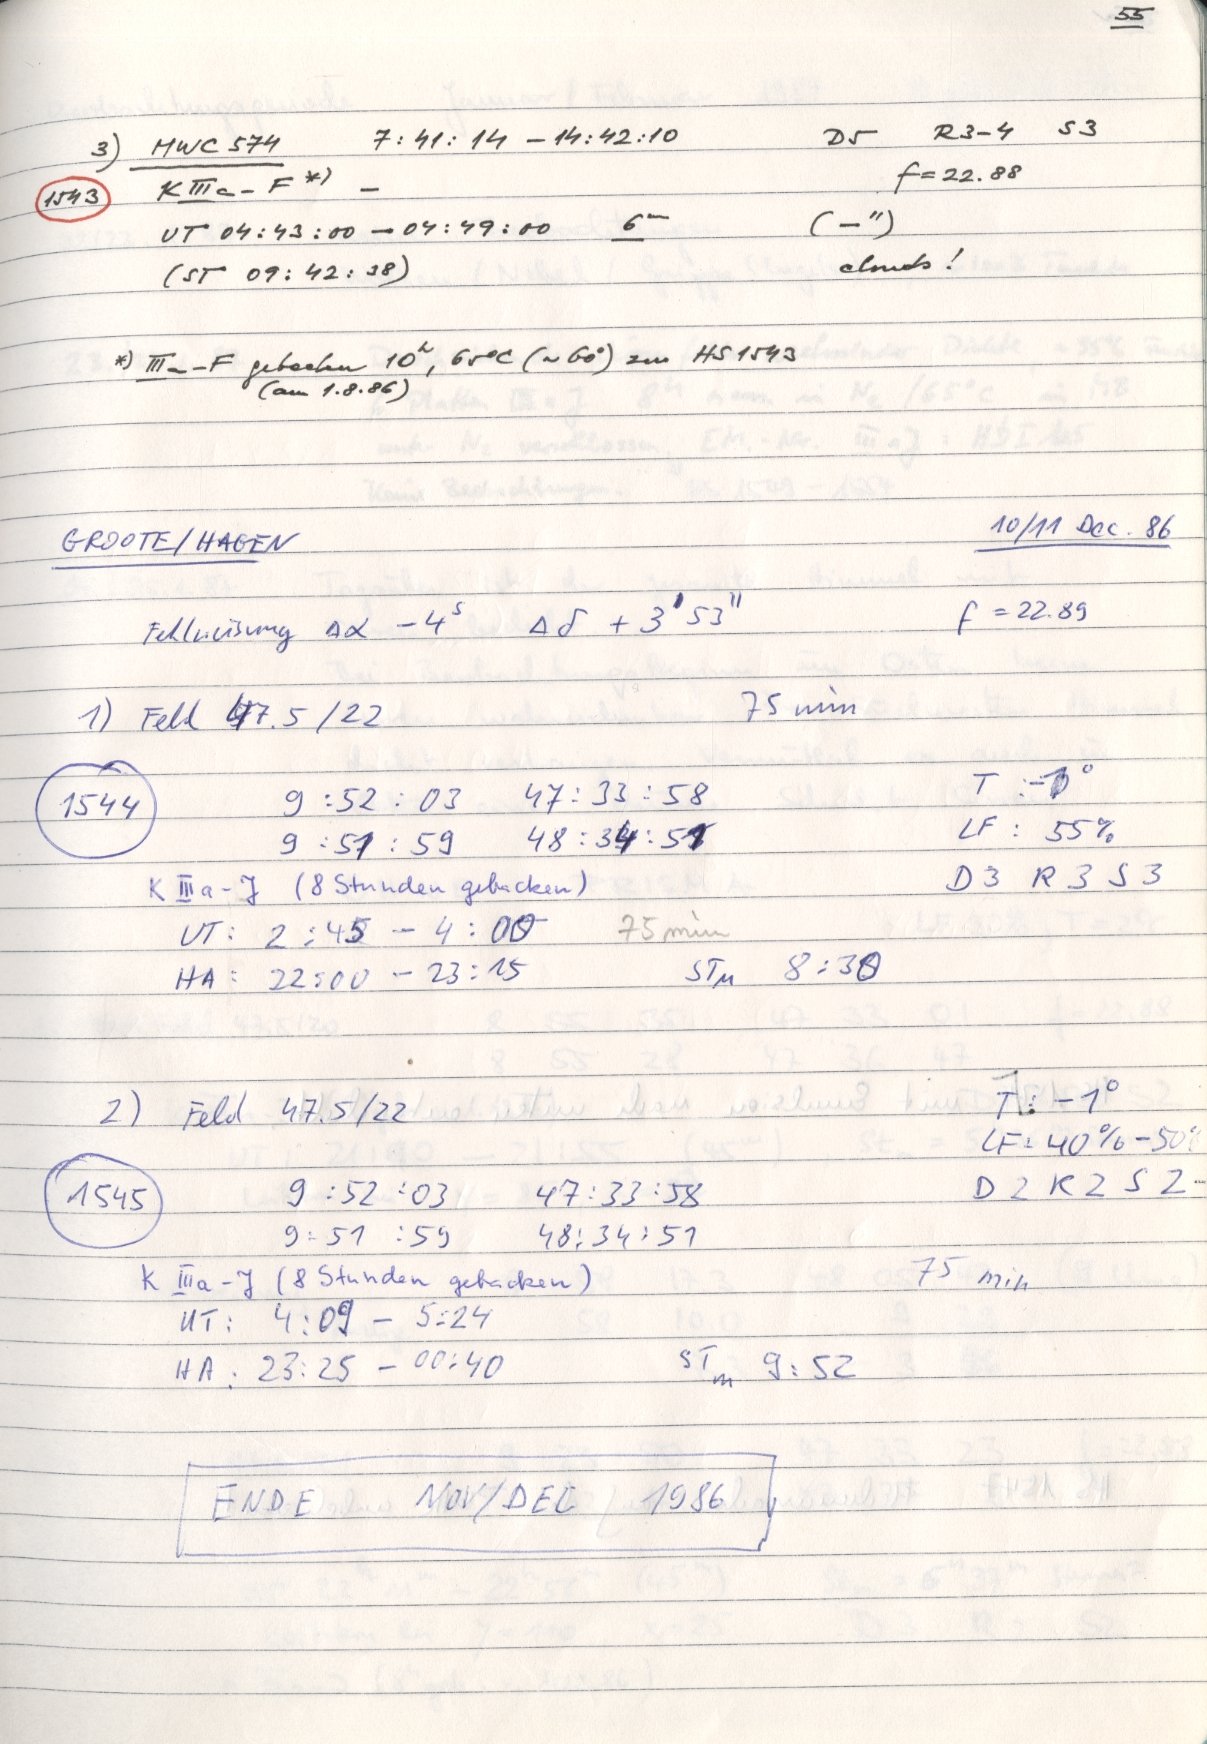 55
3) MWC 574 7:41:14 -14:42:10 D5 R3-4 S3
1543 K IIIa-F *) - f=22.88
UT 04:43:00 - 04:49:00 6m (-")
(ST 09:42:38) clouds!
*) IIIa-F gebacken 10h, 65°C (~60°) zu HS1543
(am 1.8.86)
GROOTE/HAGEN 10/11 Dec. 86
Fehlweisung Δα -4s Δδ +3'53" f=22.89
1) Feld 47.5/22 75 min
1544 9:52:03 47:33:58 T:-1°
9:51:59 48:34:51 LF: 55%
K IIIa-J (8 Stunden gebacken) D3 R3 S3
UT: 2:45 - 4:00 75 min
HA: 22:00 - 23:15 STM 8:30
2) Feld 47.5/22 T: -1°
LF: 40%-50%
1545 9:52:03 47:33:58 D2 R2 S2-
9:51:59 48:34:51
K IIIa-J (8 Stunden gebacken) 75 min
UT: 4:09 - 5:24
HA: 23:25 - 00:40 STm 9:52
ENDE NOV/DEC 1986